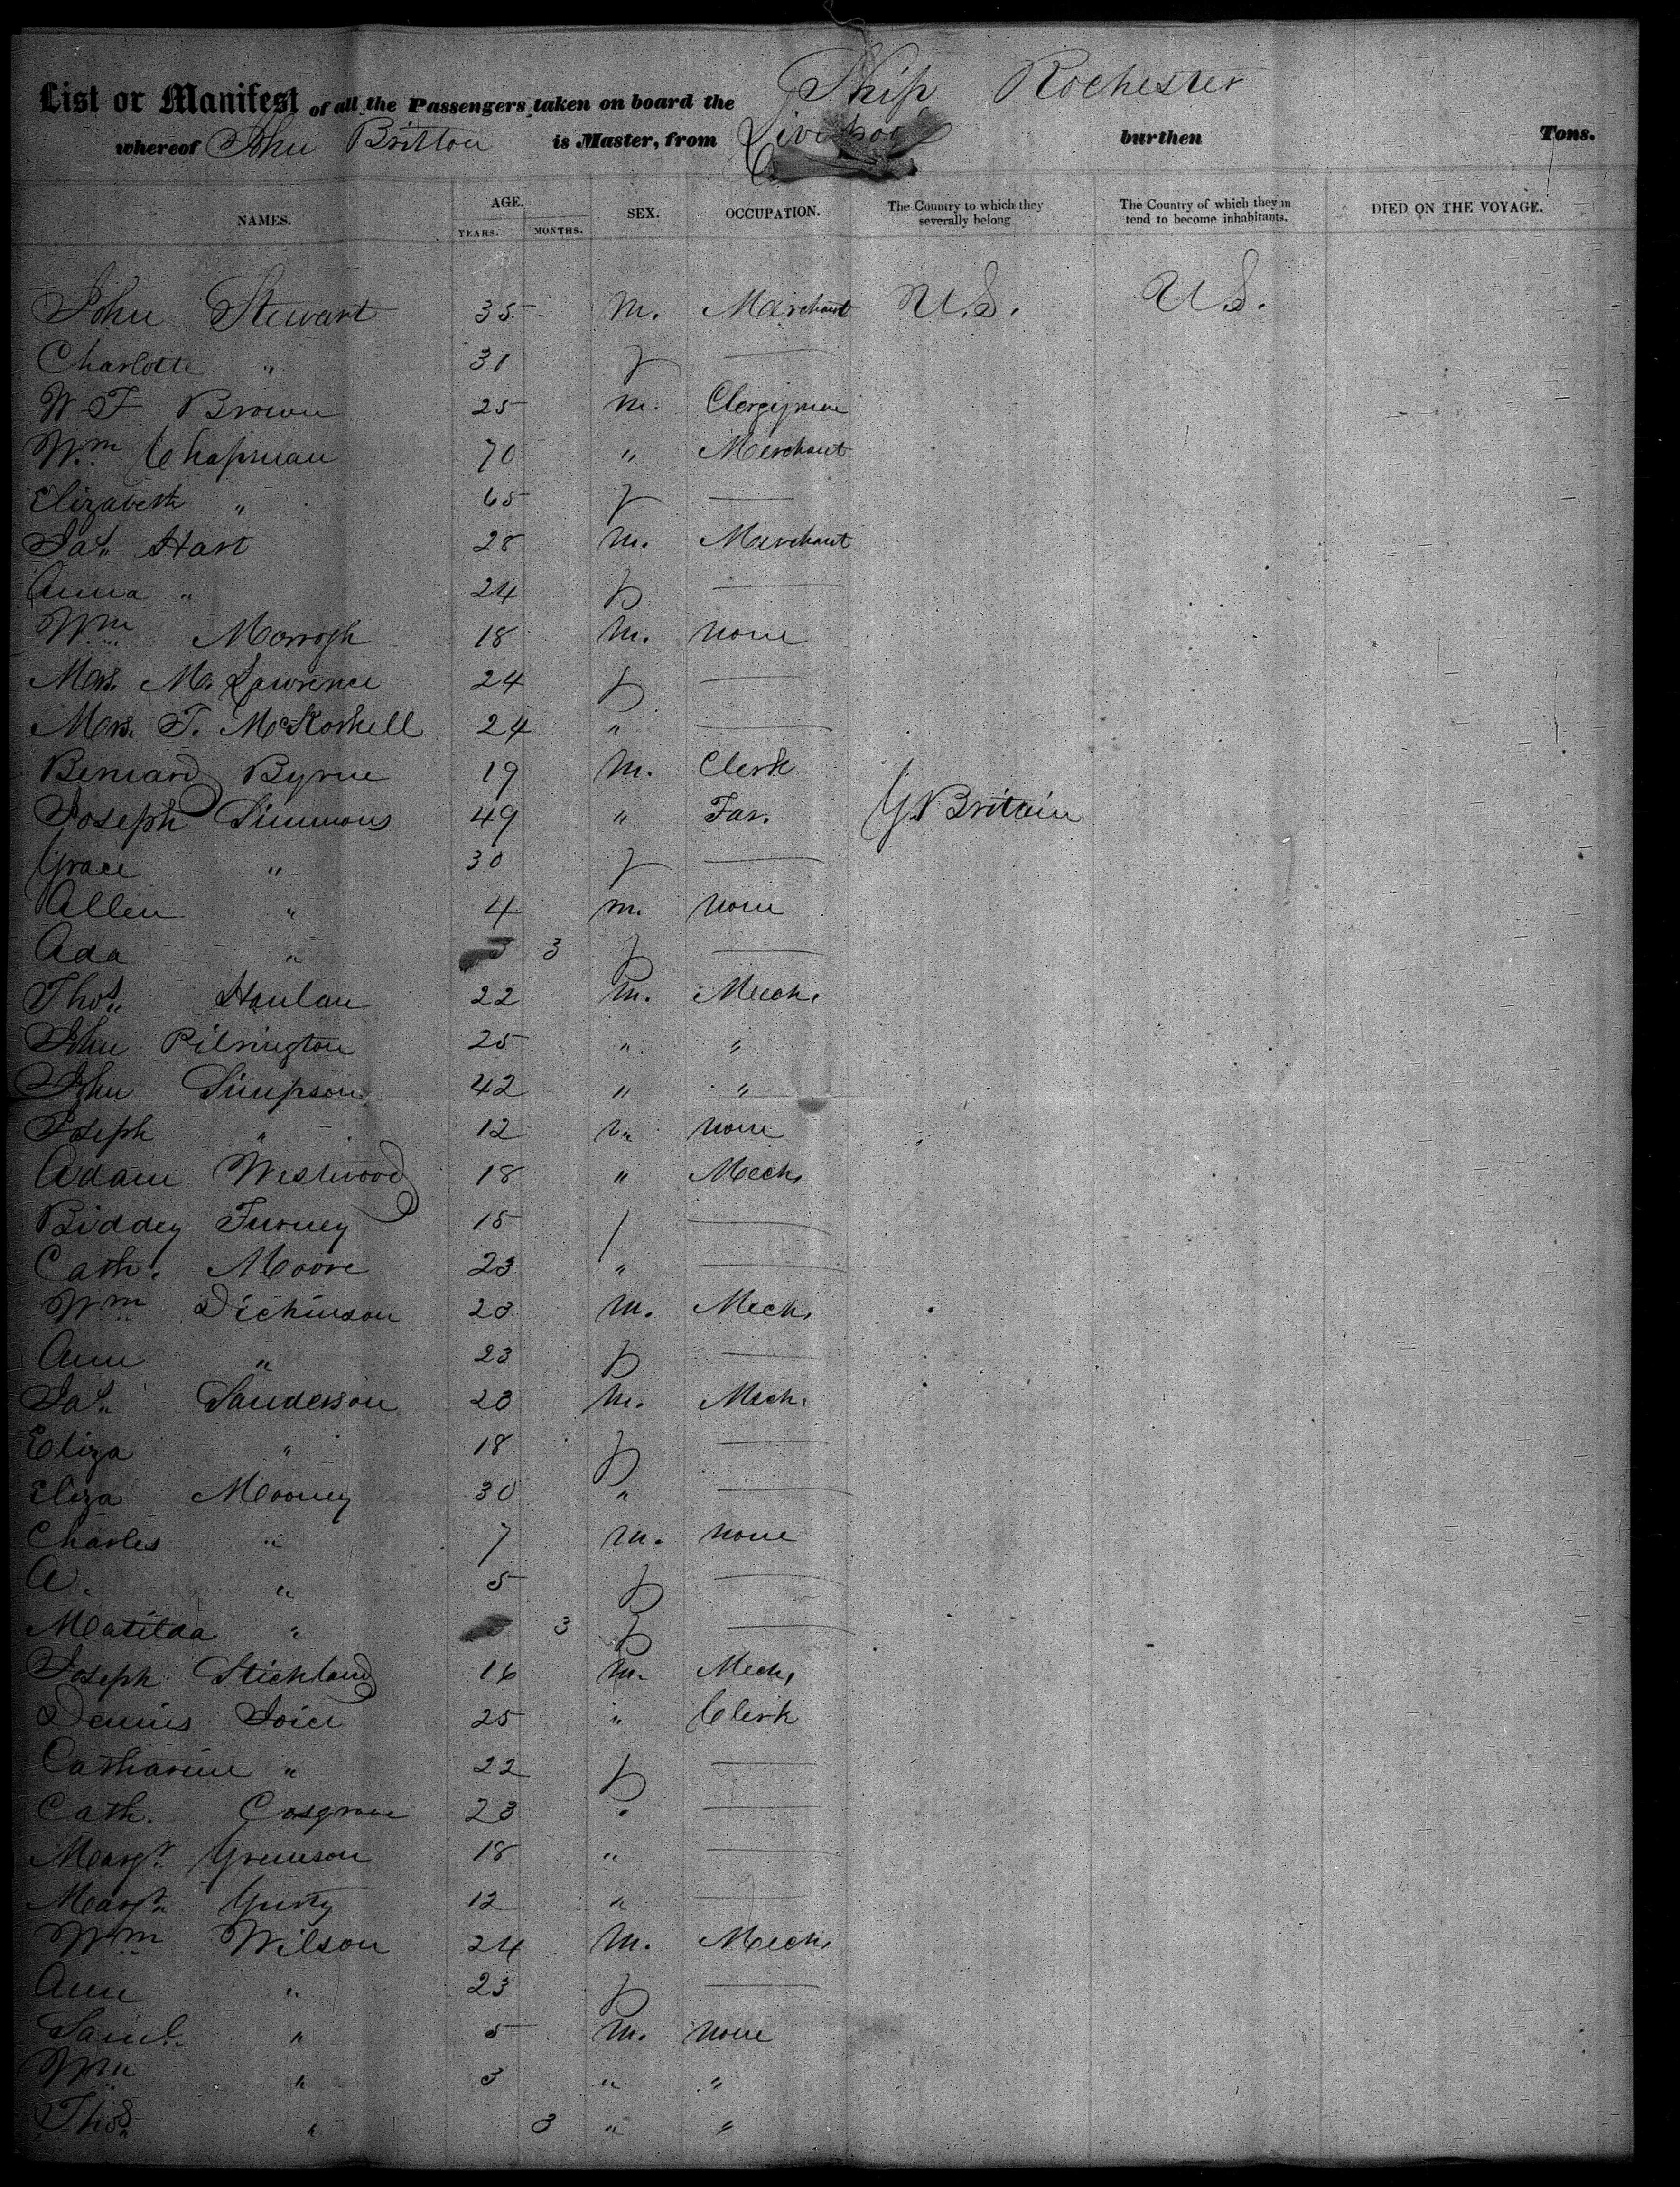 List or Manifest of all the Passengers taken on board the Ship Rochester
whereof John Britton is Master, from Liverpool burthen Tons.
NAMES. AGE. YEARS. MONTHS. SEX. OCCUPATION. The Country to which they severally belong The Country of which they in tend to become inhabitants. DIED ON THE VOYAGE.
John Stewart 35 m. Merchant U.S. U.S.
Charlotte " 31 f —
W F Brown 25 m. Clergyman
Wm Chapman 70 " Merchant
Elizabeth " 65 f —
Jas. Hart 28 m. Merchant
Anna " 24 f —
Wm Morrogh 18 m. none
Mrs. M. Lawrence 24 f —
Mrs. T. McKorkell 24 " —
Bernard Byrne 19 m. Clerk
Joseph Simmons 49 " Far. G. Britain
Grace " 30 f —
Allen " 4 m. none
Ada " 3 f —
Thos. Hanlan 22 m. Mech.
John 25 " "
John Simpson 42 " "
Joseph " 12 " none
Adam Westwood 18 " Mech.
Biddey Furney 15 f —
Cath. Moore 23 " —
Wm Dickinson 23 m. Mech.
Ann " 23 f —
Jas. Sanderson 20 m. Mech.
Eliza " 18 f —
Eliza Mooney 30 " —
Charles " 7 m. none
A. " 5 f —
Matilda " 3 f —
Joseph Stickland 16 m. Mech.
Dennis 25 " Clerk
Catharine " 22 f —
Cath. Cosgrove 23 " —
Margt. 18 " —
Margt. 12 " —
Wm Wilson 24 m. Mech.
Ann " 23 f —
Saml. " 5 m. none
Wm " 3 " "
Thos. " 3 " "